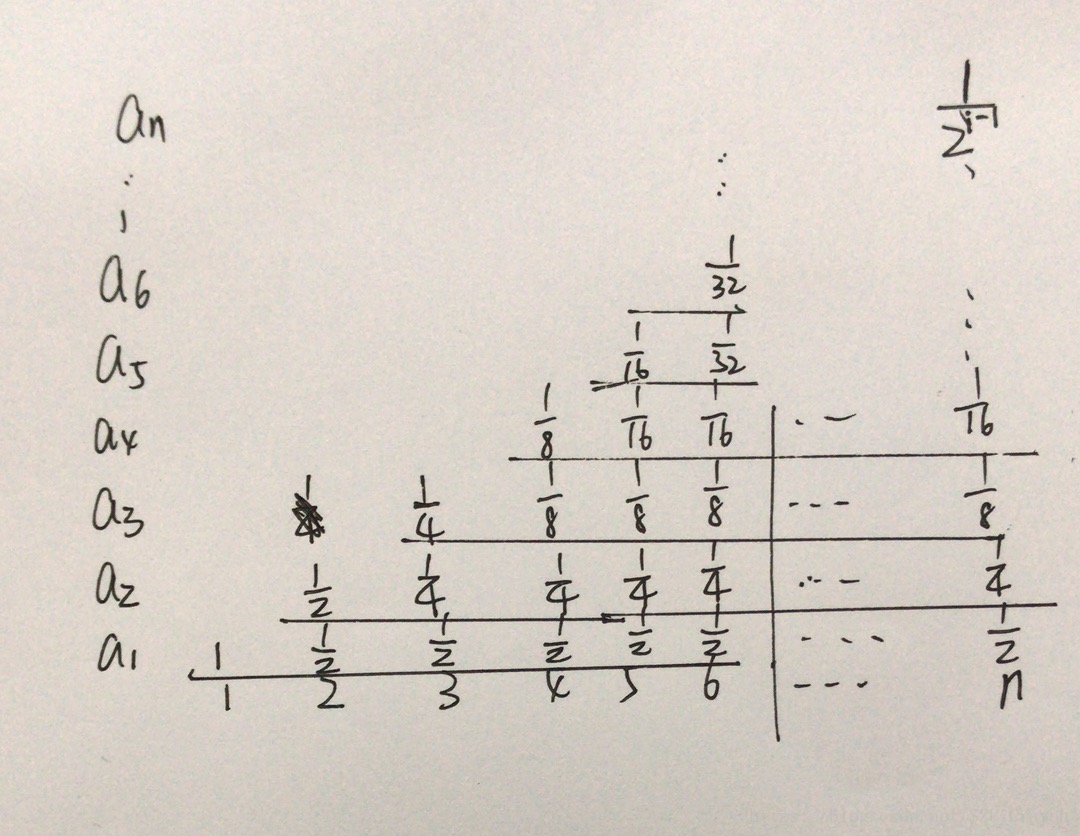 aₙ 1/2^(i-1)
⋮ ⋮
a₆ 1/32
a₅ 1/16 1/32
a₄ 1/8 1/16 1/16 ·-- 1/16
a₃ 1/4 1/8 1/8 1/8 --- 1/8
a₂ 1/2 1/4 1/4 1/4 1/4 ·-- 1/4
a₁ 1 1/2 1/2 1/2 1/2 1/2 --- 1/2
1 2 3 4 5 6 --- n